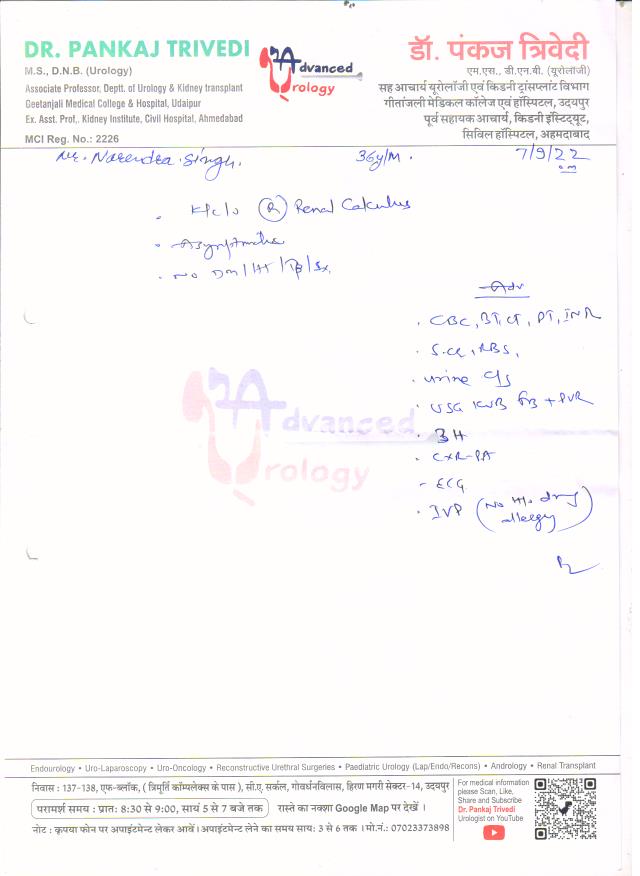 DR. PANKAJ TRIVEDI
M.S., D.N.B. (Urology)
Associate Professor, Deptt. of Urology & Kidney transplant
Geetanjali Medical College & Hospital, Udaipur
Ex. Asst. Prof., Kidney Institute, Civil Hospital, Ahmedabad
MCI Reg. No.: 2226
Advanced
Urology
डॉ. पंकज त्रिवेदी
एम.एस., डी.एन.बी. (यूरोलॉजी)
सह आचार्य यूरोलॉजी एवं किडनी ट्रांसप्लांट विभाग
गीतांजली मेडिकल कॉलेज एवं हॉस्पिटल, उदयपुर
पूर्व सहायक आचार्य, किडनी इंस्टिट्यूट,
सिविल हॉस्पिटल, अहमदाबाद
Mr. Narendra Singh. 36y/M. 7/9/22
. K/c/o (R) Renal Calculus
. Asymptomatic
. No DM/HT/TB/Sx.
Adv
. CBC, BT, CT, PT, INR
. S.Cr, RBS,
. Urine C/S
. USG KUB + PVR
. BH
. CXR-PA
- ECG
. IVP (No H/o drug allergy)
Advanced
Urology
Endourology • Uro-Laparoscopy • Uro-Oncology • Reconstructive Urethral Surgeries • Paediatric Urology (Lap/Endo/Recons) • Andrology • Renal Transplant
निवास : 137-138, एफ-ब्लॉक, ( त्रिमूर्ति कॉम्पलेक्स के पास ), सी.ए. सर्कल, गोवर्धनविलास, हिरण मगरी सेक्टर-14, उदयपुर
परामर्श समय : प्रात: 8:30 से 9:00, सायं 5 से 7 बजे तक रास्ते का नक्शा Google Map पर देखें ।
नोट : कृपया फोन पर अपाइंटमेन्ट लेकर आवें । अपाइंटमेन्ट लेने का समय साय: 3 से 6 तक । मो.नं.: 07023373898
For medical information
please Scan, Like,
Share and Subscribe
Dr. Pankaj Trivedi
Urologist on YouTube